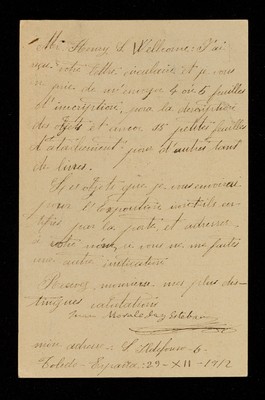 Mr. Henry S. Wellcome: J'ai
reçu votre lettre circulaire et je vous
prie de m'envoyer 4 ou 5 feuilles
d'inscription, pour la description
des objets et encore 15 petites feuilles
d'atachement pour d'autres tant
de livres.
Les objets que je vous enverrai
pour l'Exposition
par la poste, et adressé
à votre nom, si vous ne me faites
une autre indication
Recevez, monsieur mes plus dis-
tingués salutations
Juan Moraleda y Esteban
mon adresse: S. Ildefonso - 6 -
Toledo - España: 29 - XII - 1912